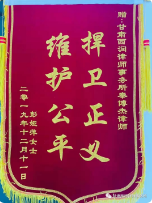 赠:甘肃西涧律师事务所秦博杰律师
捍卫正义
维护公平
彭娅萍女士
二零一九年十二月十一日